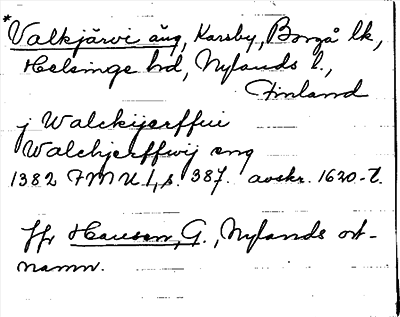 *Valkjärvi äng, Karsby, Borgå lk,
Helsinge hd, Nylands l.,
Finland
j Walckijerffwi
Walchjerffwij æng
1382 FMU 1, s. 387. avskr. 1620-t.
Jfr Hausen, G., Nylands ort-
namn.